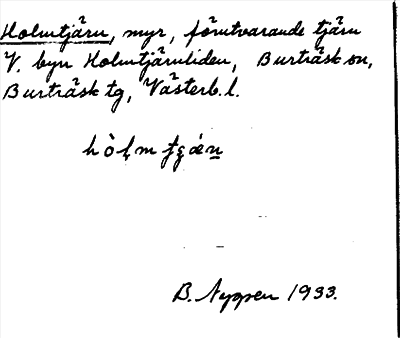 Holmtjärn, myr, förutvarande tjärn
V. byn Holmtjärnliden, Burträsk sn,
Burträsk tg, Västerb. l.
B. Nyppen 1933.